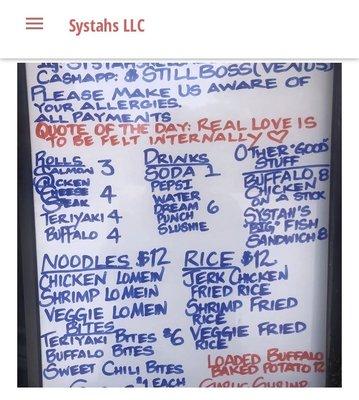 Systahs LLC
CASHAPP: $STILLBOSS(VENUS)
PLEASE MAKE US AWARE OF
YOUR ALLERGIES.
ALL PAYMENTS
QUOTE OF THE DAY: REAL LOVE IS
TO BE FELT INTERNALLY ♡
ROLLS
SALMON 3
CHICKEN
CHEESE 4
STEAK
TERIYAKI 4
BUFFALO 4
DRINKS
SODA 1
PEPSI
WATER
DREAM 6
PUNCH
SLUSHIE
OTHER "GOOD"
STUFF
BUFFALO 8
CHICKEN
ON A STICK
SYSTAH'S
"BIG" FISH
SANDWICH 8
NOODLES $12
CHICKEN LOMEIN
SHRIMP LOMEIN
VEGGIE LOMEIN
BITES
TERIYAKI BITES $6
BUFFALO BITES
SWEET CHILI BITES
$1 EACH
RICE $12
JERK CHICKEN
FRIED RICE
SHRIMP FRIED
RICE
VEGGIE FRIED
RICE
LOADED BUFFALO
BAKED POTATO 12
GARLIC SHRIMP